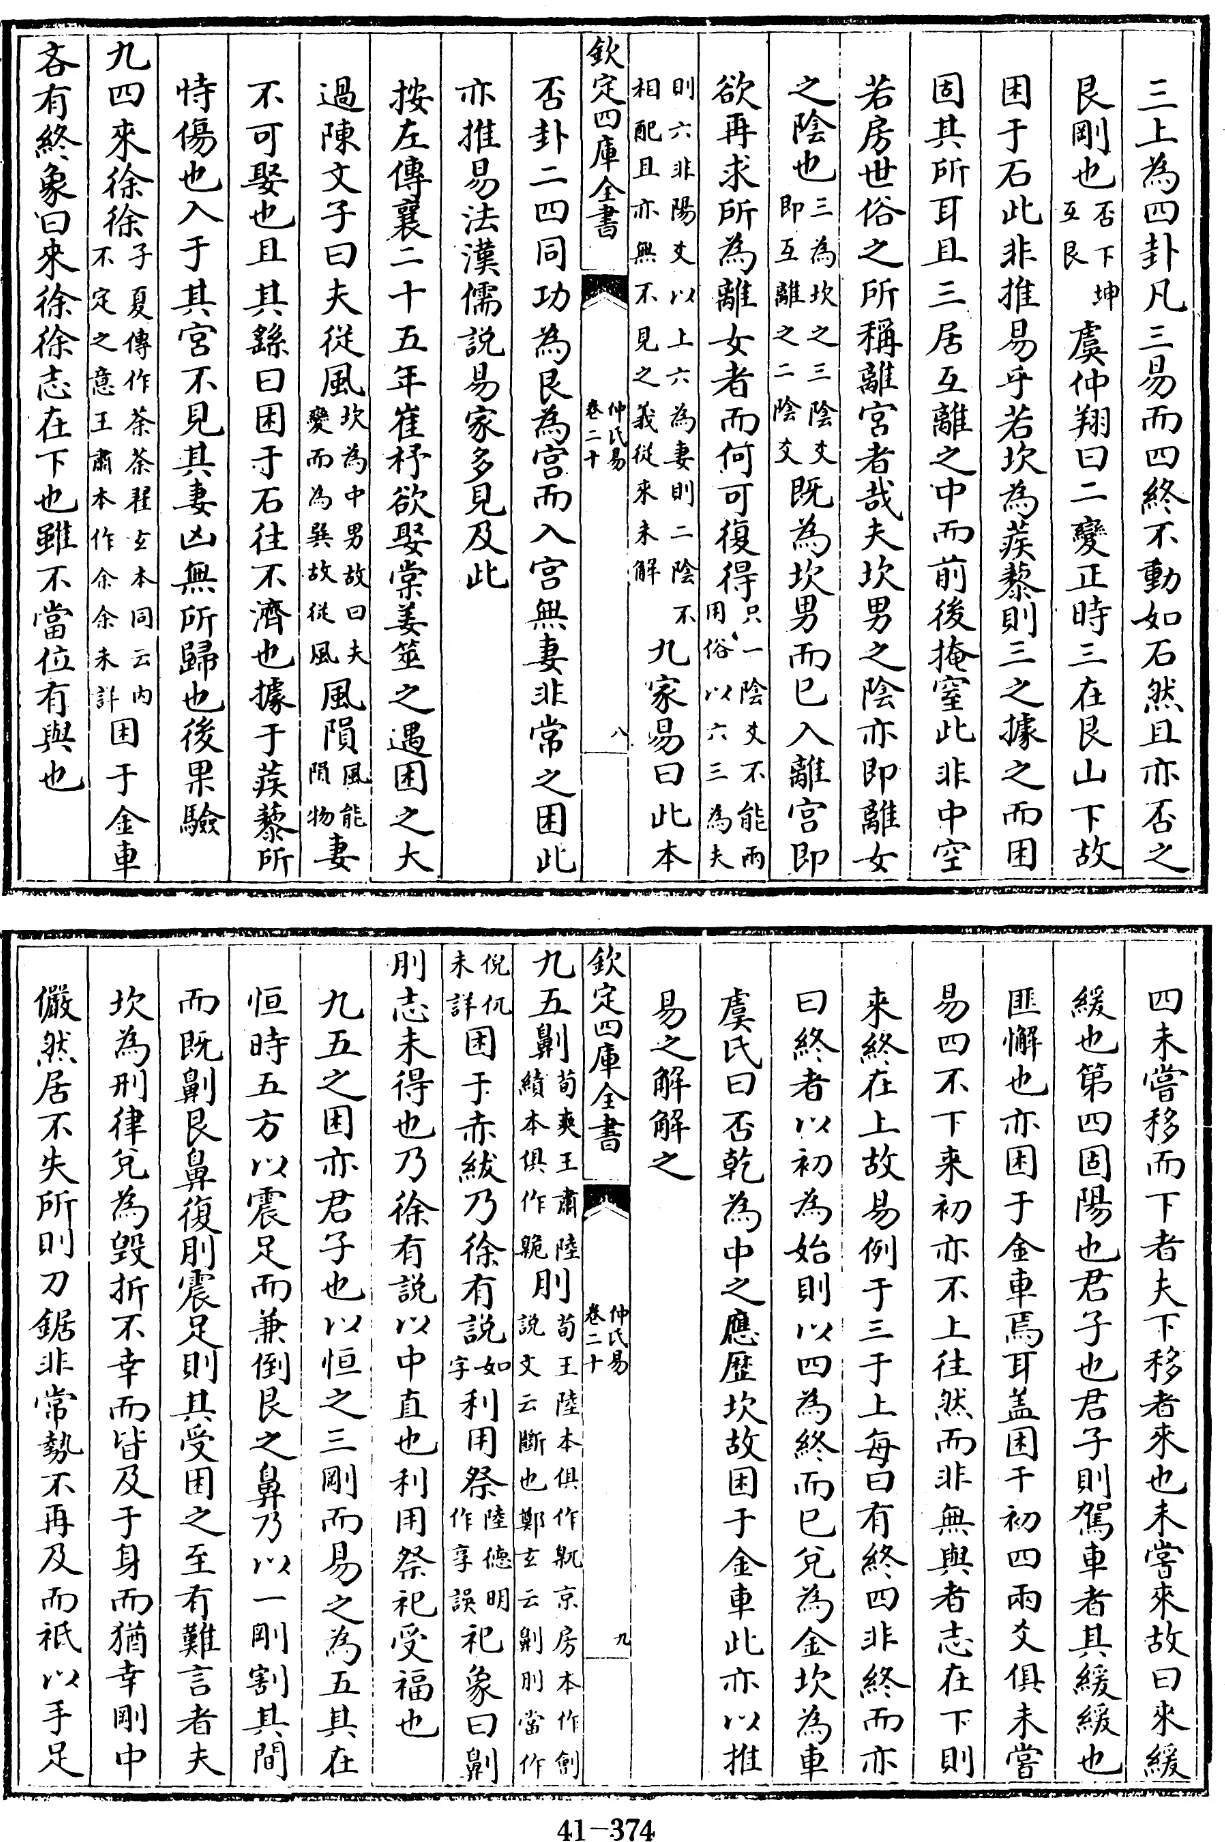 三上為四卦凡三易而四終不動如石然且亦否之
艮剛也否下坤互艮虞仲翔曰二變正時三在艮山下故
困于石此非推易乎若坎為蒺藜則三之據之而困
固其所耳且三居互離之中而前後掩窒此非中空
若房世俗之所稱離宮者哉夫坎男之陰亦即離女
之陰也三為坎之三陰爻即互離之二陰爻既為坎男而已入離宮即
欲再求所為離女者而何可復得只一陰爻不能兩用俗以六三為夫
則六非陽爻以上六為妻則二陰不相配且亦無不見之義從來未解九家易曰此本
欽定四庫全書
仲氏易
卷二十
八
否卦二四同功為艮為宮而入宮無妻非常之困此
亦推易法漢儒說易家多見及此
按左傳襄二十五年崔杼欲娶棠姜筮之遇困之大
過陳文子曰夫從風坎為中男故曰夫變而為巽故從風風隕風能隕物妻
不可娶也且其繇曰困于石往不濟也據于蒺藜所
恃傷也入于其宮不見其妻凶無所歸也後果驗
九四來徐徐子夏傳作荼荼翟玄本同云內不定之意王肅本作余余未詳困于金車
吝有終象曰來徐徐志在下也雖不當位有與也
四未嘗移而下者夫下移者來也未嘗來故曰來緩
緩也第四固陽也君子也君子則駕車者其緩緩也
匪懈也亦困于金車焉耳蓋困于初四兩爻俱未嘗
易四不下來初亦不上往然而非無與者志在下則
來終在上故易例于三于上每曰有終四非終而亦
曰終者以初為始則以四為終而已兌為金坎為車
虞氏曰否乾為中之應歷坎故困于金車此亦以推
易之解解之
欽定四庫全書
仲氏易
卷二十
九
九五劓荀爽王肅陸績本俱作臲刖荀王陸本俱作䡾京房本作劊說文云斷也鄭玄云劓刖當作
倪㐳未詳困于赤紱乃徐有說如字利用祭陸德明作享誤祀象曰劓
刖志未得也乃徐有說以中直也利用祭祀受福也
九五之困亦君子也以恒之三剛而易之為五其在
恒時五方以震足而兼倒艮之鼻乃以一剛割其間
而既劓艮鼻復刖震足則其受困之至有難言者夫
坎為刑律兌為毀折不幸而皆及于身而猶幸剛中
儼然居不失所則刀鋸非常勢不再及而祇以手足
41-374